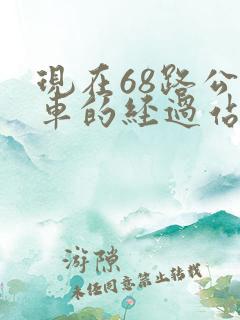 現在68路公
車的經過佔
游隙
未经同意禁止转载